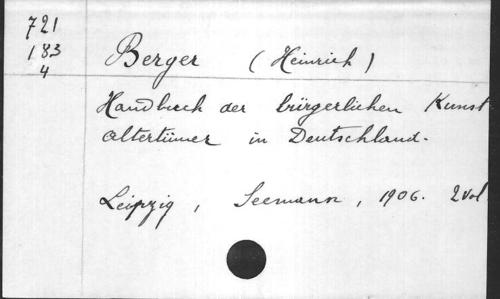 721
183
4
Berger (Heinrich)
Handbuch der bürgerlichen Kunst
altertümer in Deutschland.
Leipzig, Seemann, 1906. 2 vol